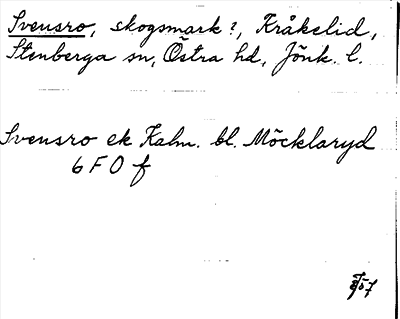 Svensro, skogsmark?, Kråkelid,
Stenberga sn, Östra hd, Jönk. l.
Svensro ek Kalm. bl. Möcklaryd
6 F 0 f